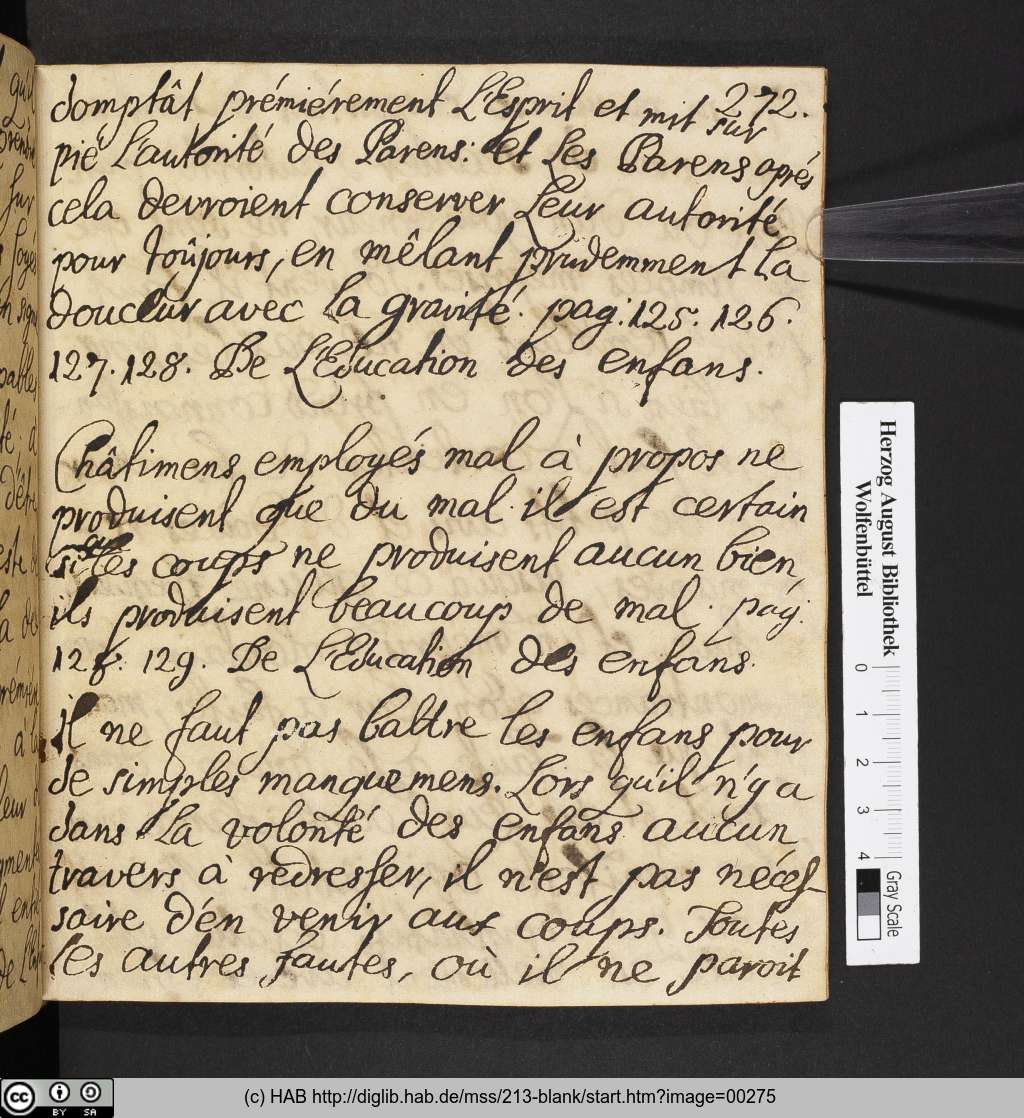 272.
domptât prémiérement L'Esprit et mit sur
pié L'autorité des Parens: et Les Parens aprés
cela devroient conserver Leur autorité
pour toûjours, en mêlant prudemment La
douceur avéc La gravité. pag: 125. 126.
127. 128. De L'Education des enfans.
Châtimens employés mal à propos ne
produisent que du mal. il est certain
que
si les coups ne produisent aucun bien,
ils produisent beaucoup de mal. pag.
128. 129. De L'Education des enfans.
il ne faut pas battre les enfans pour
de simples manquemens. Lors qu'il n'y a
dans La volonté des enfans aucun
travers à redresser, il n'est pas néces-
saire d'en venir aux coups. Toutes
les autres fautes, où il ne paroit
Herzog August Bibliothek
Wolfenbüttel
0 1 2 3 4
Gray Scale
cc BY SA
(c) HAB http://diglib.hab.de/mss/213-blank/start.htm?image=00275